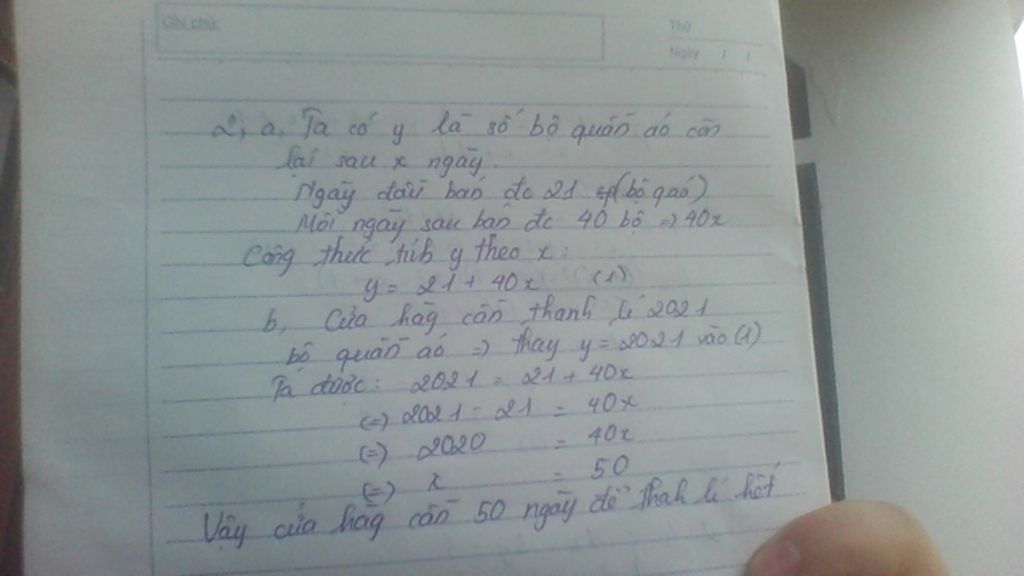 Ghi chú:
Thứ
Ngày / /
2, a, Ta có y là số bộ quần áo còn
lại sau x ngày.
Ngày đầu bán đc 21 sp (bộ qaó)
Mỗi ngày sau bán đc 40 bộ => 40x
Công thức tíh y theo x:
y = 21 + 40x (1)
b, Cửa hàg cần thanh lí 2021
bộ quần aó => thay y = 2021 vào (1)
Ta được: 2021 = 21 + 40x
(=) 2021 - 21 = 40x
(=) 2020 = 40x
(=) x = 50
Vậy cửa hàg cần 50 ngày để thah lí hết